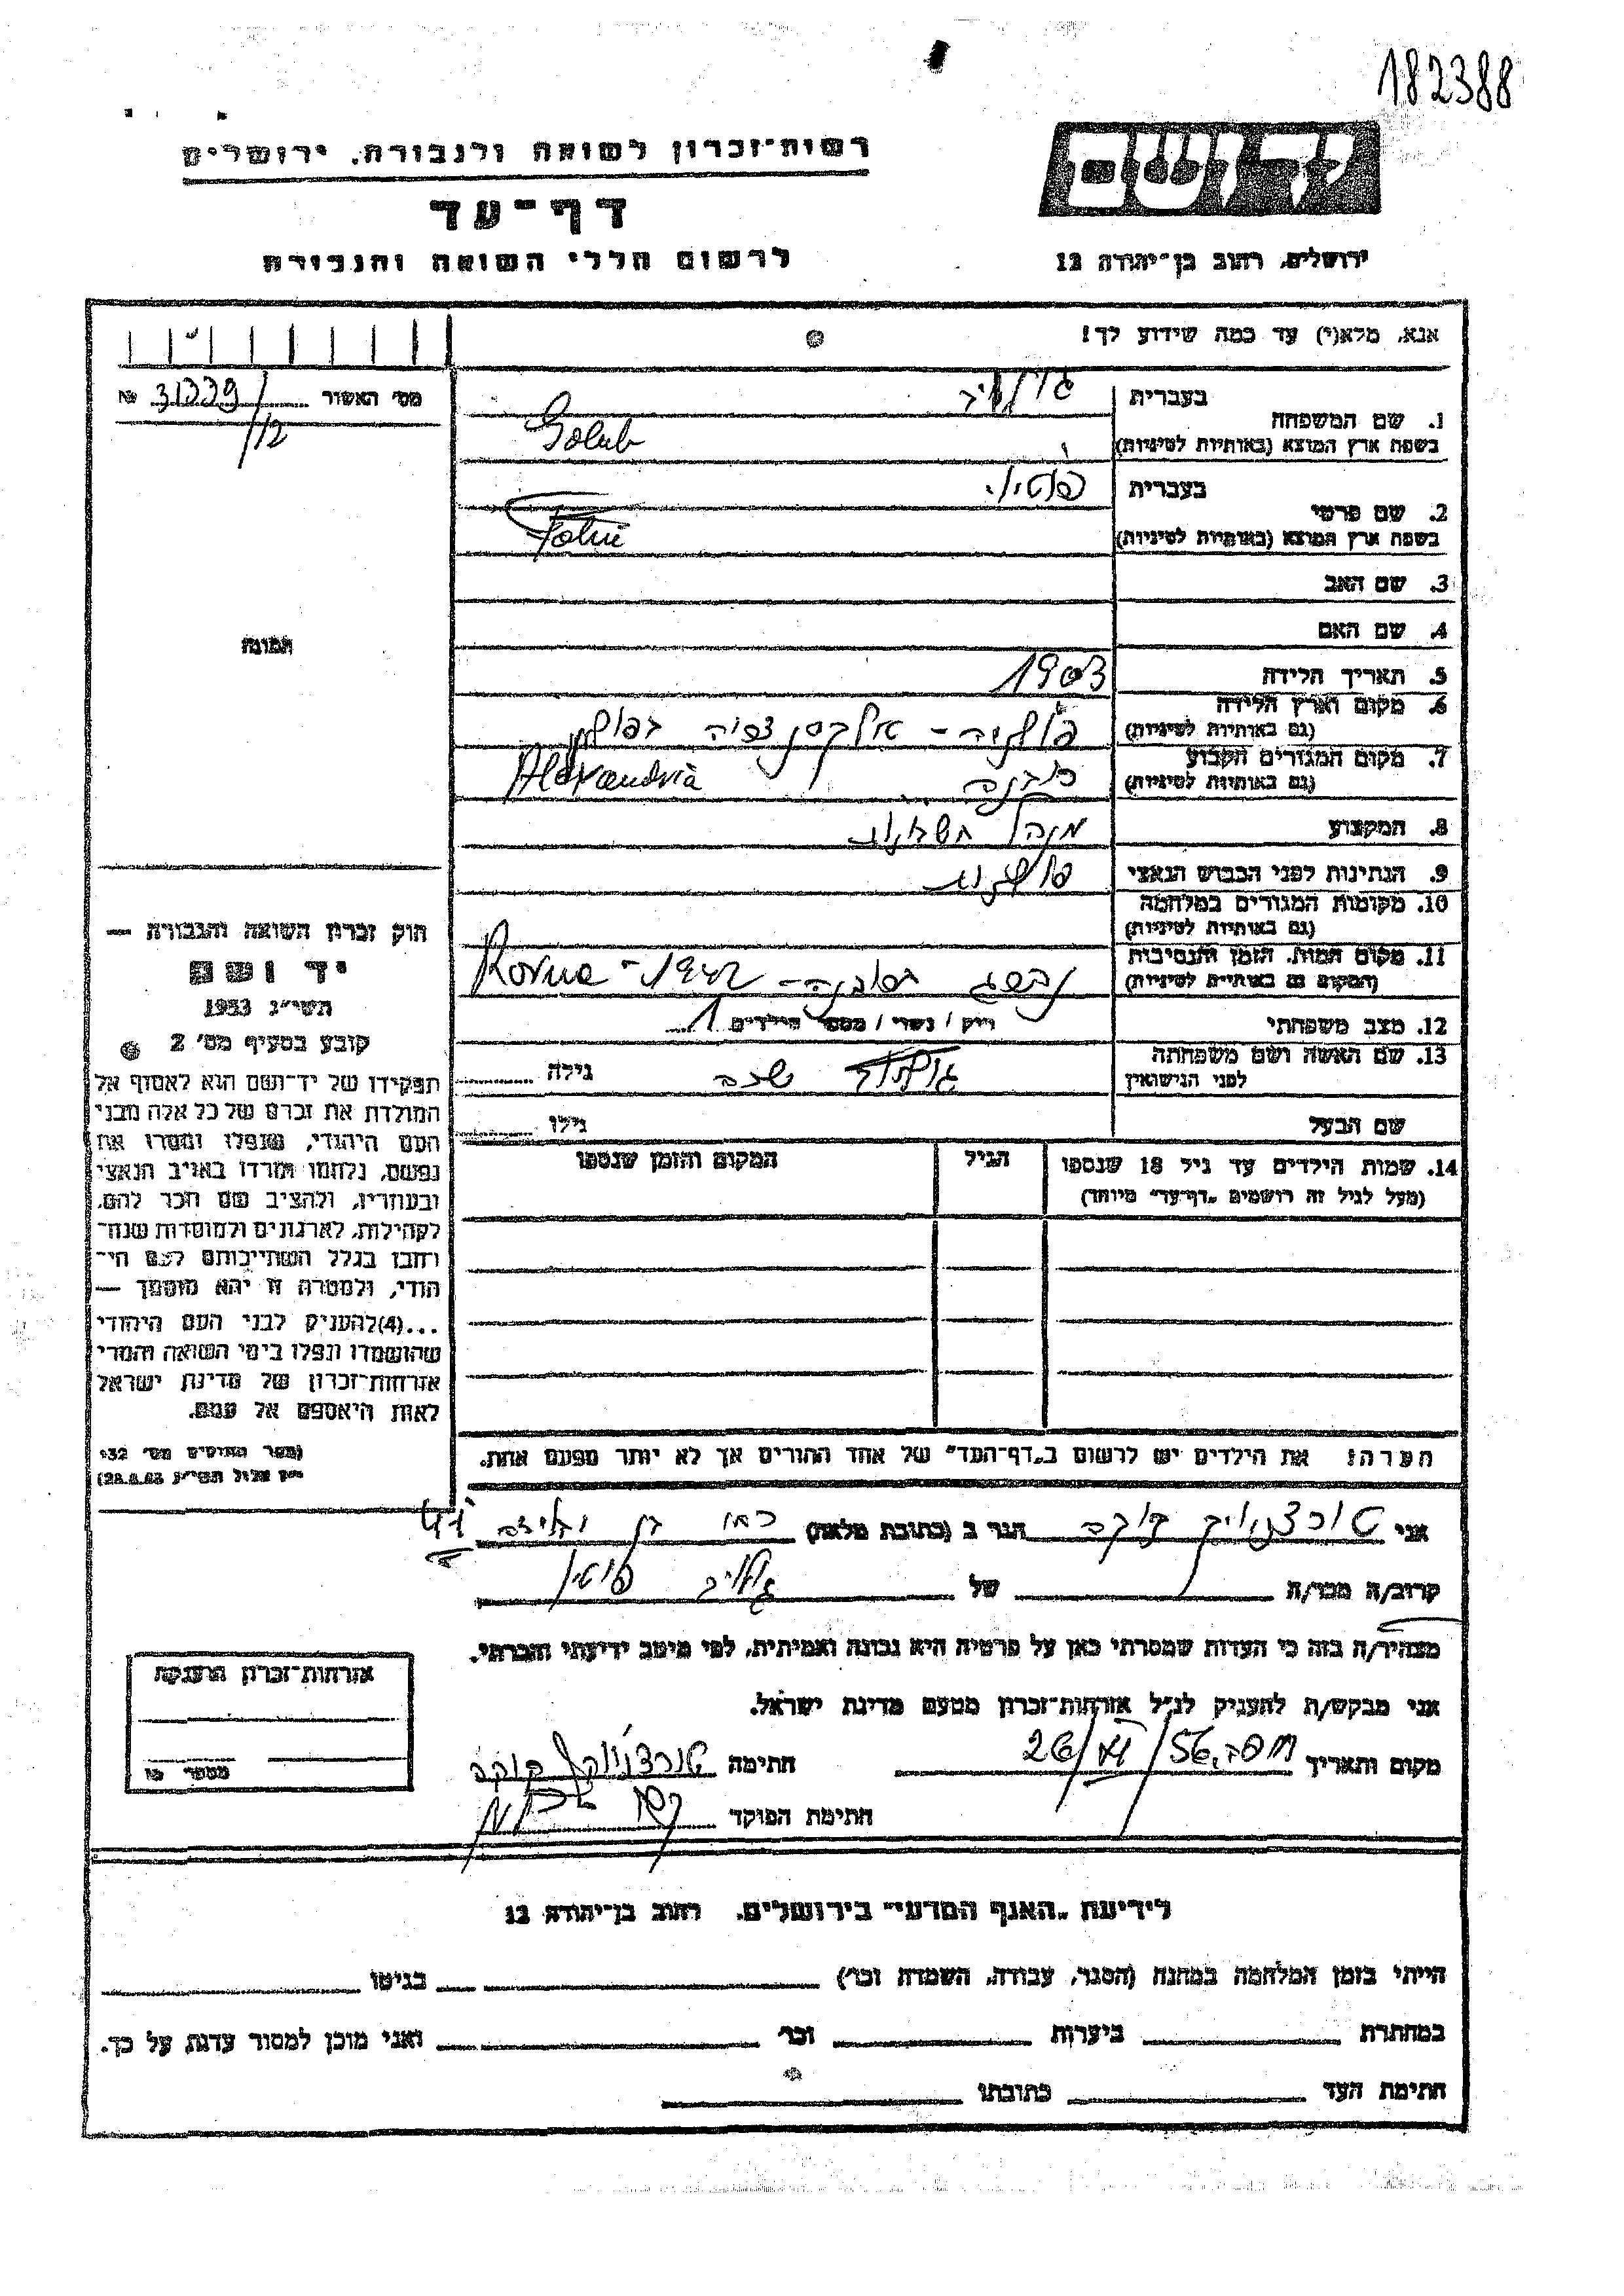 182388
רשות־זכרון לשואה ולגבורה, ירושלים
דף־עד
לרשום חללי השואה והגבורה
יד ושם
ירושלים, רחוב בן־יהודה 12
אנא, מלא(י) עד כמה שידוע לך!
מס׳ האשור 31339 №
/12
1. שם המשפחה
בעברית
בשפת ארץ המוצא (באותיות לטיניות) Golub
2. שם פרטי
בעברית
בשפת ארץ המוצא (באותיות לטיניות)
3. שם האב
4. שם האם
5. תאריך הלידה 1903
6. מקום וארץ הלידה
(גם באותיות לטיניות)
7. מקום המגורים הקבוע
(גם באותיות לטיניות) Alexandria
8. המקצוע מנהל חשבונות
9. הנתינות לפני הכבוש הנאצי
10. מקומות המגורים במלחמה
(גם באותיות לטיניות)
11. מקום המות, הזמן והנסיבות
(המקום גם באותיות לטיניות) Rovne - 1942
12. מצב משפחתי רווק / נשוי / מספר הילדים 1
13. שם האשה ושם משפחתה
לפני הנישואין
גילה
שם הבעל
גילו
14. שמות הילדים עד גיל 18 שנספו
(מעל לגיל זה רושמים „דף־עד״ מיוחד)
הגיל
המקום והזמן שנספו
הערה: את הילדים יש לרשום ב„דף־העד״ של אחד ההורים אך לא יותר מפעם אחת.
תמונה
חוק זכרון השואה והגבורה —
יד ושם
תשי״ג 1953
קובע בסעיף מס׳ 2
תפקידו של יד־ושם הוא לאסוף אל
המולדת את זכרם של כל אלה מבני
העם היהודי, שנפלו ומסרו את
נפשם, נלחמו ומרדו באויב הנאצי
ובעוזריו, ולהציב שם וזכר להם,
לקהילות, לארגונים ולמוסדות שנח־
רבו בגלל השתייכותם לעם הי־
הודי, ולמטרה זו יהא מוסמך —
...(4)להעניק לבני העם היהודי
שהושמדו ונפלו בימי השואה והמרי
אזרחות־זכרון של מדינת ישראל
לאות היאספם אל עמם.
(ספר החוקים מס׳ 132
י״ז אלול תשי״ג 28.8.53)
אני הגר ב (כתובת מלאה)
קרוב/ה מכר/ה של
מצהיר/ה בזה כי העדות שמסרתי כאן על פרטיה היא נכונה ואמיתית, לפי מיטב ידיעתי והכרתי.
אני מבקש/ת להעניק לנ״ל אזרחות־זכרון מטעם מדינת ישראל.
מקום ותאריך חתימה
חתימת הפוקד
אזרחות־זכרון הוענקה
מספר
לידיעת „האגף המדעי״ בירושלים, רחוב בן־יהודה 12
הייתי בזמן המלחמה במחנה (הסגר, עבודה, השמדה וכו׳) בגיטו
במחתרת ביערות וכו׳ ואני מוכן למסור עדות על כך.
חתימת העד כתובתו